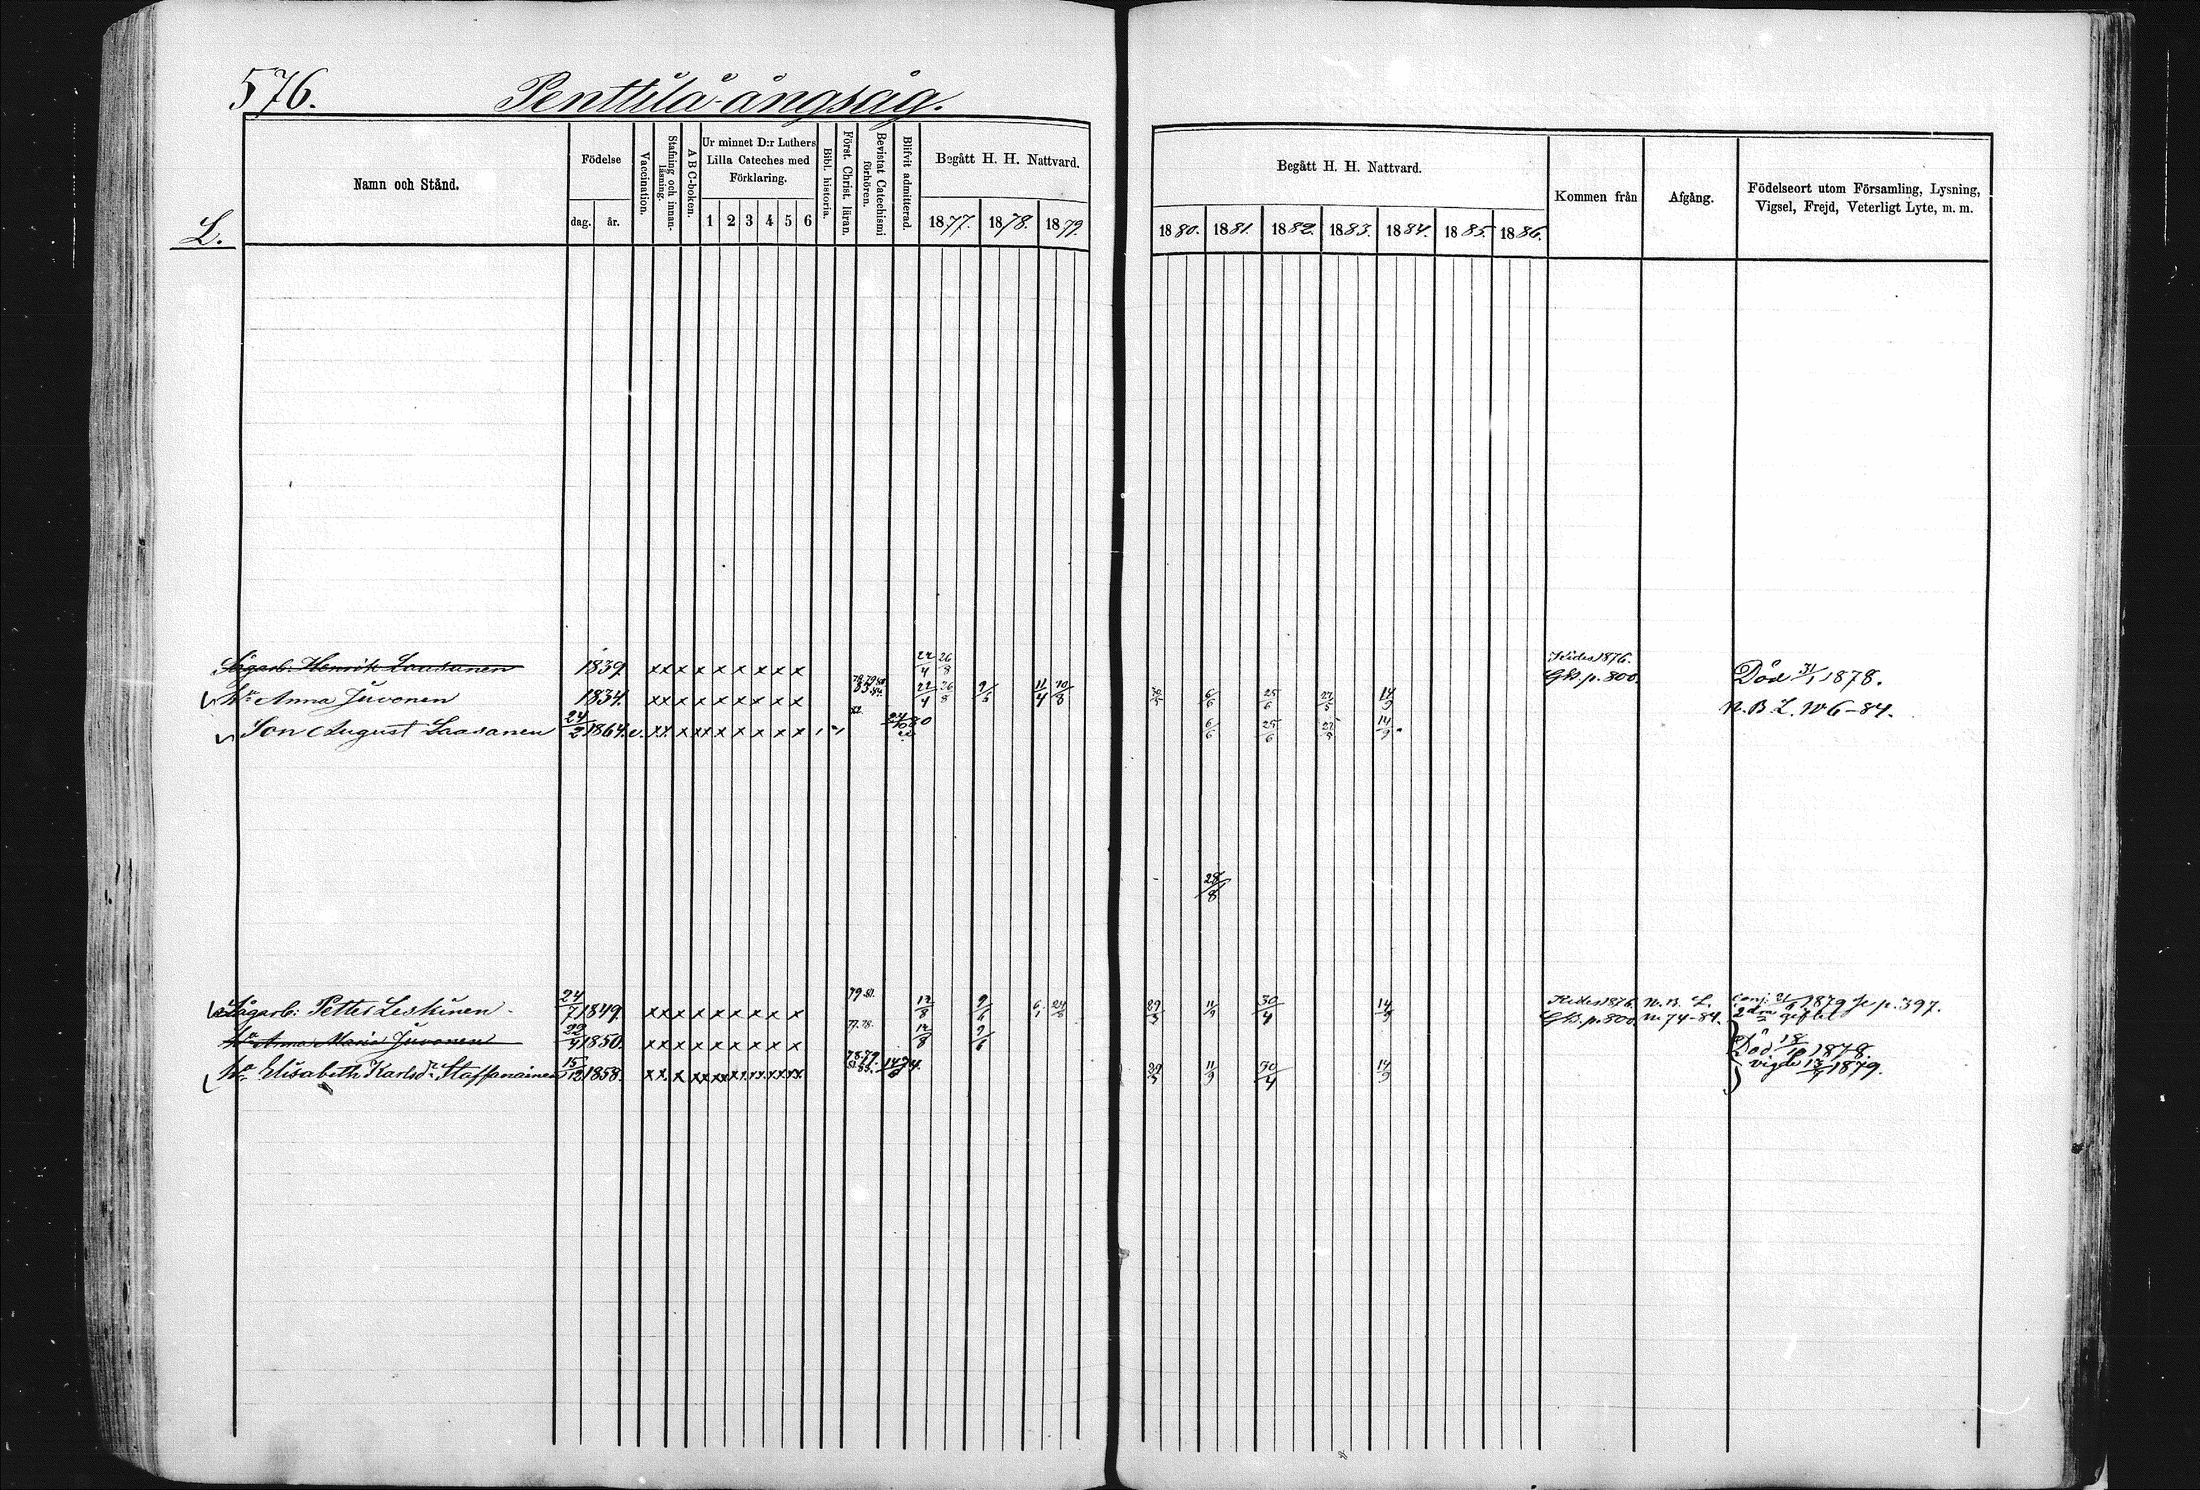 576. Penttilä-ångsåg.
L.
Namn och Stånd.
Födelse
dag. år.
Vaccination.
Stafning och innanläsning.
A B C-boken.
Ur minnet D:r Luthers Lilla Cateches med Förklaring.
1 2 3 4 5 6
Bibl. historia.
Först. Christ. läran.
Bevistat Catechismi förhören.
Blifvit admitterad.
Begått H. H. Nattvard.
1877. 1878. 1879.
Begått H. H. Nattvard.
1880. 1881. 1882. 1883. 1884. 1885. 1886.
Kommen från
Afgång.
Födelseort utom Församling, Lysning, Vigsel, Frejd, Veterligt Lyte, m. m.
Sågarb. Henrik Laasanen 1839 xx x x x x x x 22/4 26/8 Kides 1876. Gkb. p. 800. Död 31/1 1878.
Hu Anna Juvonen 1834. xx x x x x x x 22/4 26/8 9/5 11/4 10/8 6/6 25/6 27/5 14/9 N. B. L. No 6-84.
Son August Laasanen 24/2 1864. v. xx x xx x x x x x 24/10 80 6/6 25/6 27/5 14/9
28/8
Sågarb: Petter Leskinen 24/7 1849. xx x x x x x x 79. 81. 12/8 9/6 29/3 11/9 30/4 14/9 Kides 1876. Gkb. p. 800 N. B. L. No 74-84. 1879 p. 397. 2dra giftet
Hu Anna Maria Juvonen 22/4 1850. xx x x x x x x 77. 78. 12/8 9/6 Död 18/10 1878.
Hu Elisabeth Karlsd:r Staffanainen 15/12 1858. xx x xx xx xx xx xx xx 74. 29/3 11/9 30/4 14/9 vigde 13/7 1879.